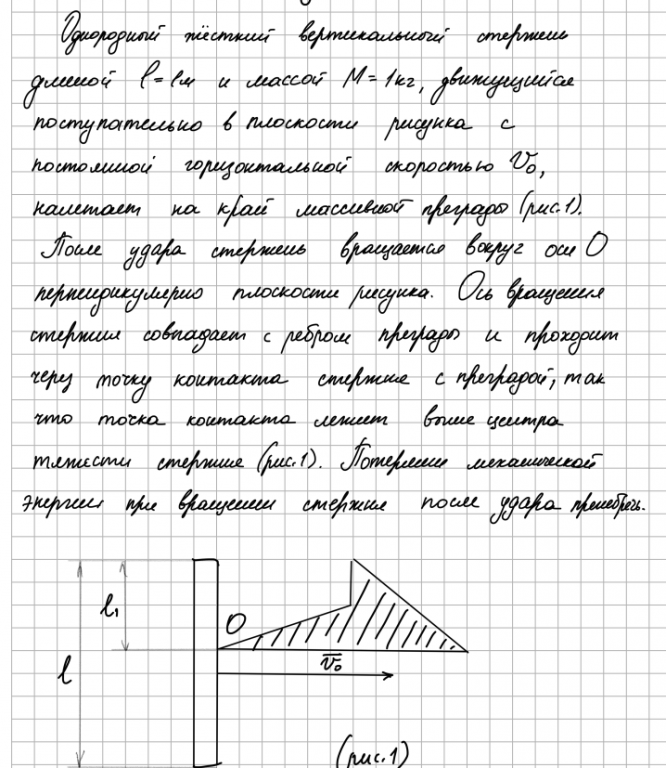 Однородный жёсткий вертикальный стержень
длиной l = 1м и массой M = 1кг, движущийся
поступательно в плоскости рисунка с
постоянной горизонтальной скоростью V₀,
налетает на край массивной преграды (рис.1).
После удара стержень вращается вокруг оси O
перпендикулярно плоскости рисунка. Ось вращения
стержня совпадает с ребром преграды и проходит
через точку контакта стержня с преградой, так
что точка контакта лежит выше центра
тяжести стержня (рис.1). Потерями механической
энергии при вращении стержня после удара пренебречь.
l₁
O
l
v₀
(рис.1)